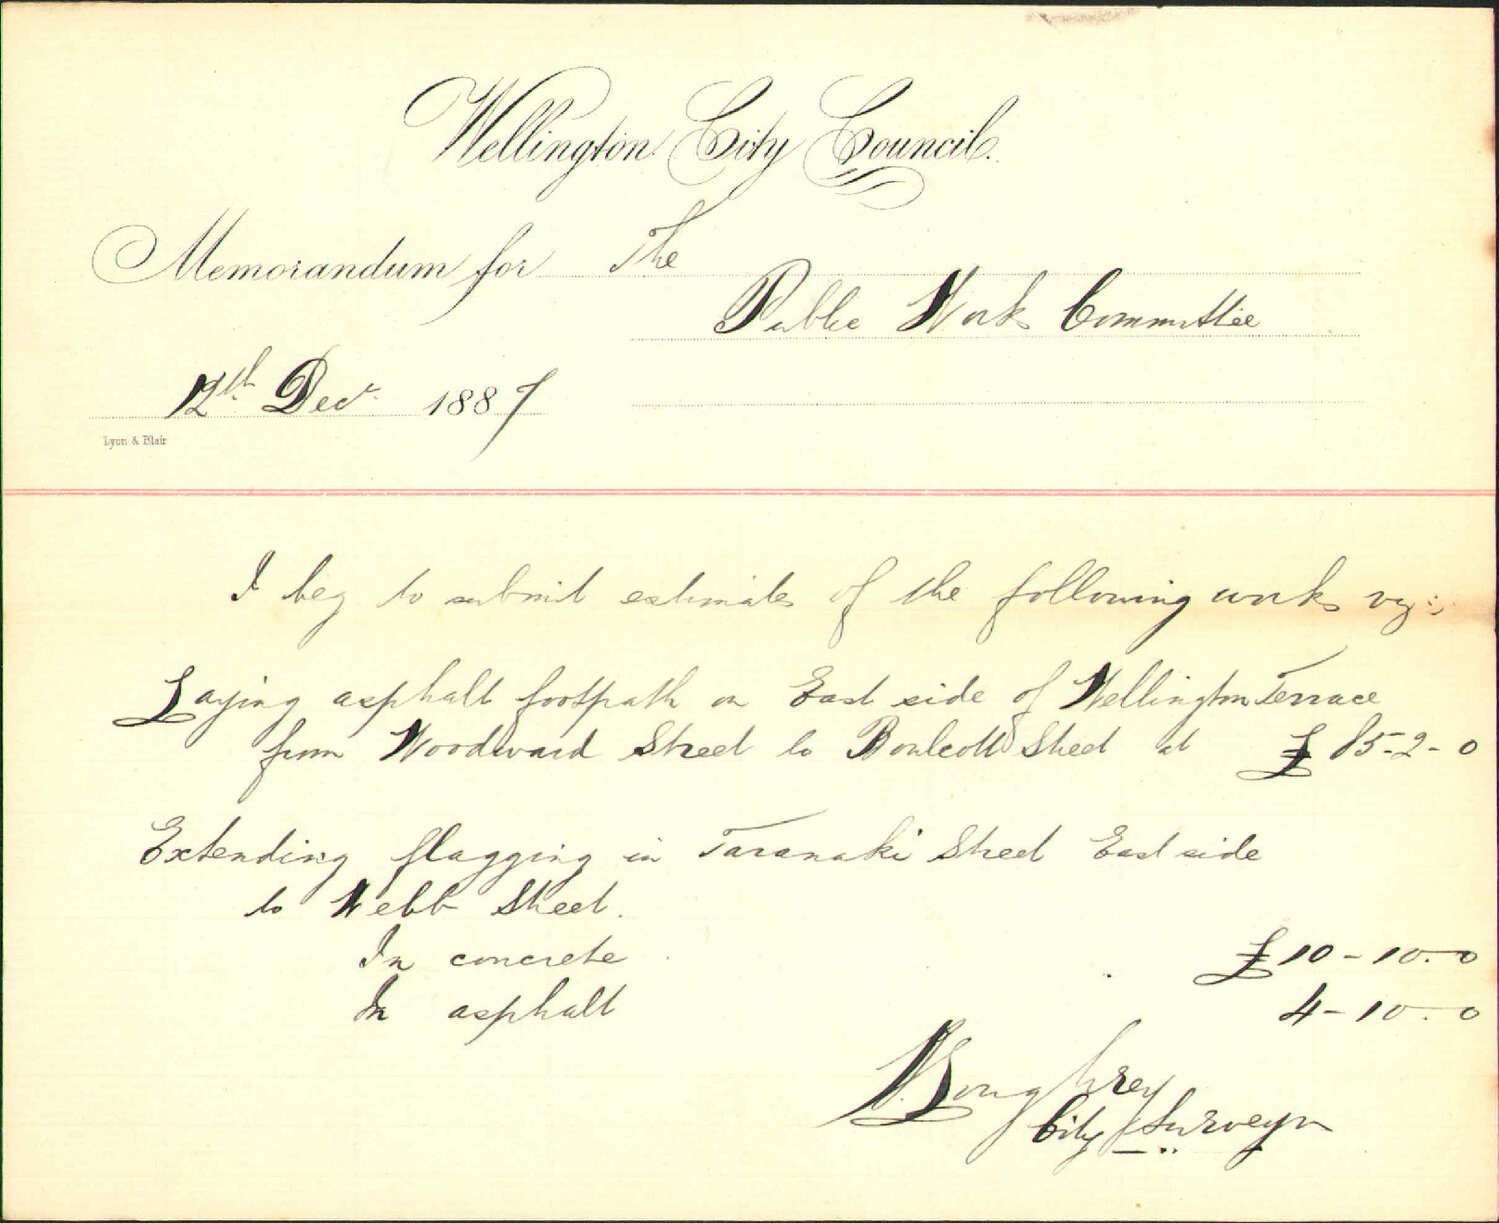 Wellington City Council.
Memorandum for The
Public Works Committee
12th Decr 1887
Lyon & Blair
I beg to submit estimates of the following works viz:,
Laying asphalt footpath on East side of Wellington Terrace
from Woodward Street to Boulcott Street at £ 85-2-0
Extending flagging in Taranaki Street East side
to Webb Street.
In concrete £10-10-0
In asphalt 4-10-0
Loughrey
City Surveyor